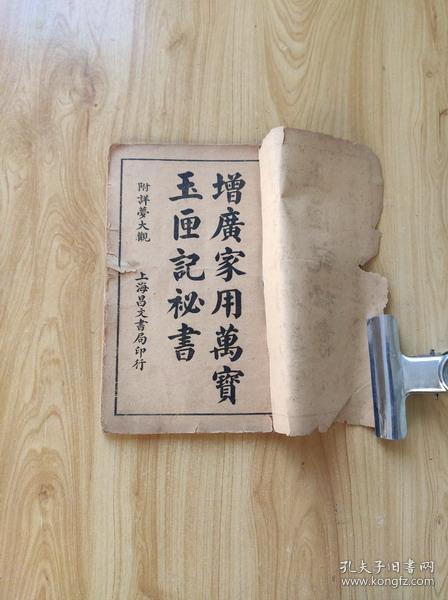 增廣家用萬寶
玉匣記祕書
附詳夢大觀
上海昌文書局印行
孔夫子旧书网
www.kongfz.com